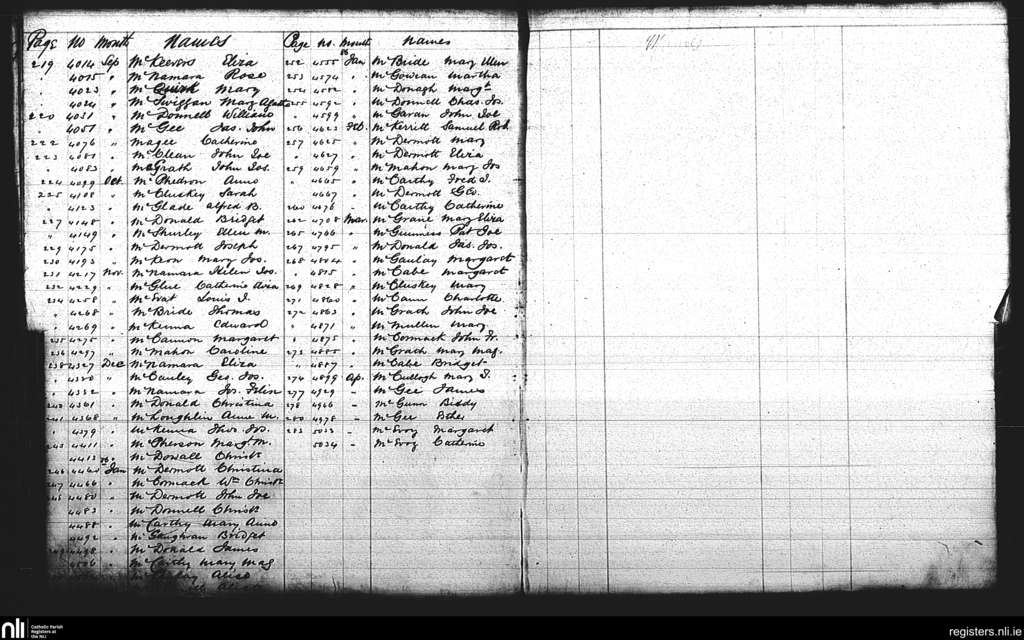 Page No Month Names
219 4014 Sep McKeevers Eliza
4015 " McNamara Rose
4023 " McQuirk Mary
4024 " McSwiggan Mary Agatha
220 4031 " McDonnell William
4051 " McGee Jas. John
222 4076 " Magee Catherine
223 4081 " McClean John Joe
4083 McGrath John Jos.
224 4099 Oct. McPhedron Anno
225 4108 " McCluskey Sarah
4123 " McGlade Alfred B.
227 4148 " McDonald Bridget
" 4149 " McShurley Ellen M.
229 4175 " McDermott Joseph
230 4193 " McKeon Mary Jos.
231 4217 Nov. McNamara Helen Jos.
232 4229 " McGlue Catherine
234 4258 " Louis J.
4268 " McBride Thomas
4269 " McKenna Edward
235 4275 " McCannon Margaret
236 4297 " McMahon Caroline
238 4327 Dec McNamara Eliza
4330 " McCauley Geo. Jos.
4332 " McNamara Jos.
240 4361 " McDonald Christina
241 4368 " McLoughlin Anne M.
4379 " McKenna Thos. Jos.
243 4411 " McPherson Margt. M.
4413 McDowall Christr
246 4460 Jan McDermott Christina
247 4466 " McCormack Wm Christr
248 4480 " McDermott John Joe
4483 " McDonnell Christr
4488 " McCarthy Mary Anno
4492 " McGaughran Bridget
4498 " McDonald James
4506 " McCarthy Mary Mag
Alice
Page No. Month Names
86
252 4555 Jan McBride Mary Ellen
253 4574 " McGowran Martha
254 4582 " McDonagh Margt
255 4592 " McDonnell Chas. Jos.
" 4599 " McGaran John Joe
256 4623 Feb. McKerrill Samuel Rob
257 4625 " McDermott Mary
" 4627 " McDermott Eliza
259 4659 " McMahon Mary Jos
" 4665 " McCarthy Fred J.
4667 " McDermott Geo.
260 4676 " McCarthy Catherine
262 4708 Mar. McGrane Mary Eliza
265 4766 " McGuinness Pat Joe
267 4795 " McDonald Jas. Jos.
268 4804 " McGaulay Margaret
" 4815 " McCabe Margaret
269 4828 " McCluskey Mary
271 4860 " McCann Charlotte
272 4863 " McGrath John Joe
" 4871 " McMullen Mary
" 4875 " McCormack John Fr.
273 4885 " McGrath Mary Mag.
" 4887 " McCabe Bridget
274 4899 Ap. McCullogh Mary J.
277 4929 " McGee James
278 4966 - McGunn Biddy
280 4978 - McGee Esther
283 5033 - McEvoy Margaret
5034 - McEvoy Catherine
nli
Catholic Parish
Registers at
the NLI
registers.nli.ie